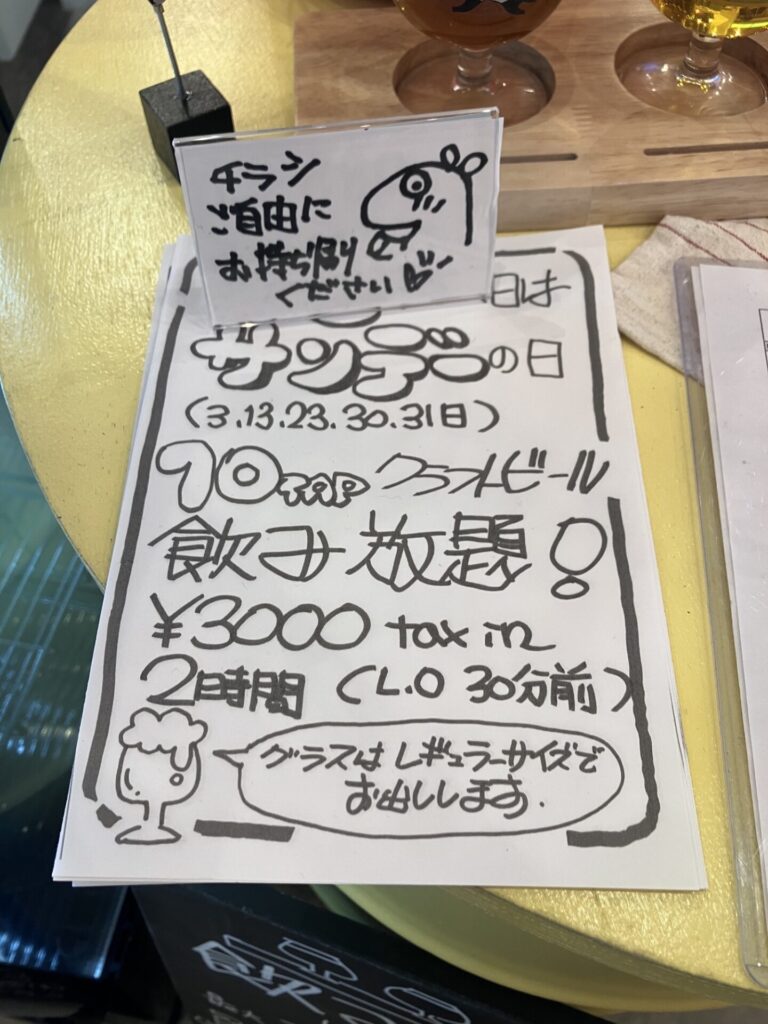 チラシ
ご自由に
お持ち帰り
ください
日は
サンデーの日
(3.13.23.30.31日)
10TAP クラフトビール
飲み放題!
¥3000 tax in
2時間 (L.O 30分前)
グラスは レギュラーサイズで
お出しします.